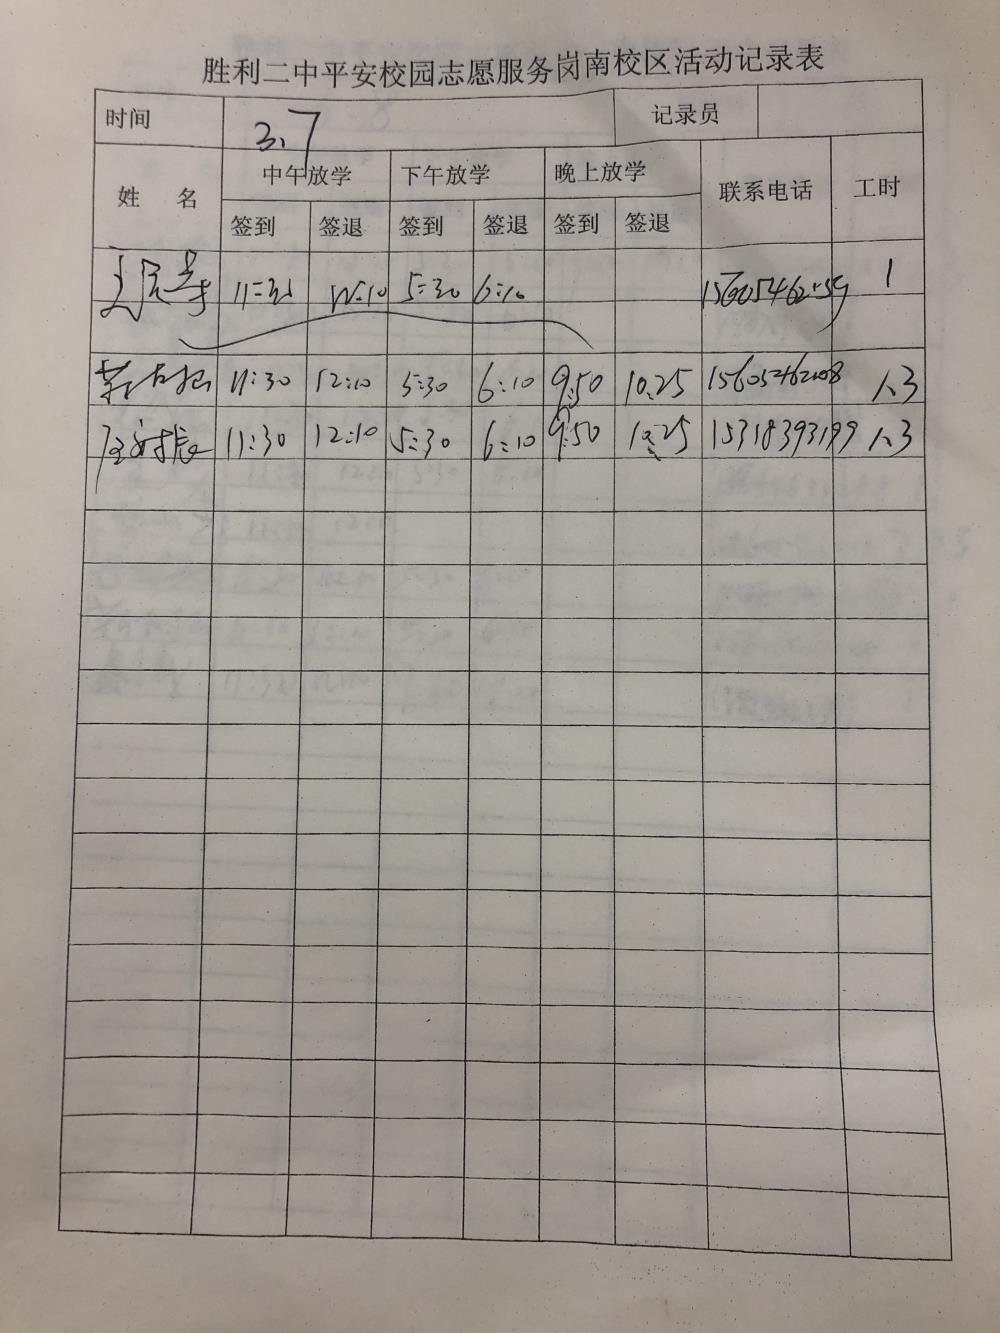 胜利二中平安校园志愿服务岗南校区活动记录表
时间 3.7 记录员
姓 名 中午放学 下午放学 晚上放学 联系电话 工时
签到 签退 签到 签退 签到 签退
11:30 12:10 5:30 6:10 1
11:30 12:10 5:30 6:10 9:50 10:25 1.3
11:30 12:10 5:30 6:10 9:50 10:25 15318393199 1.3